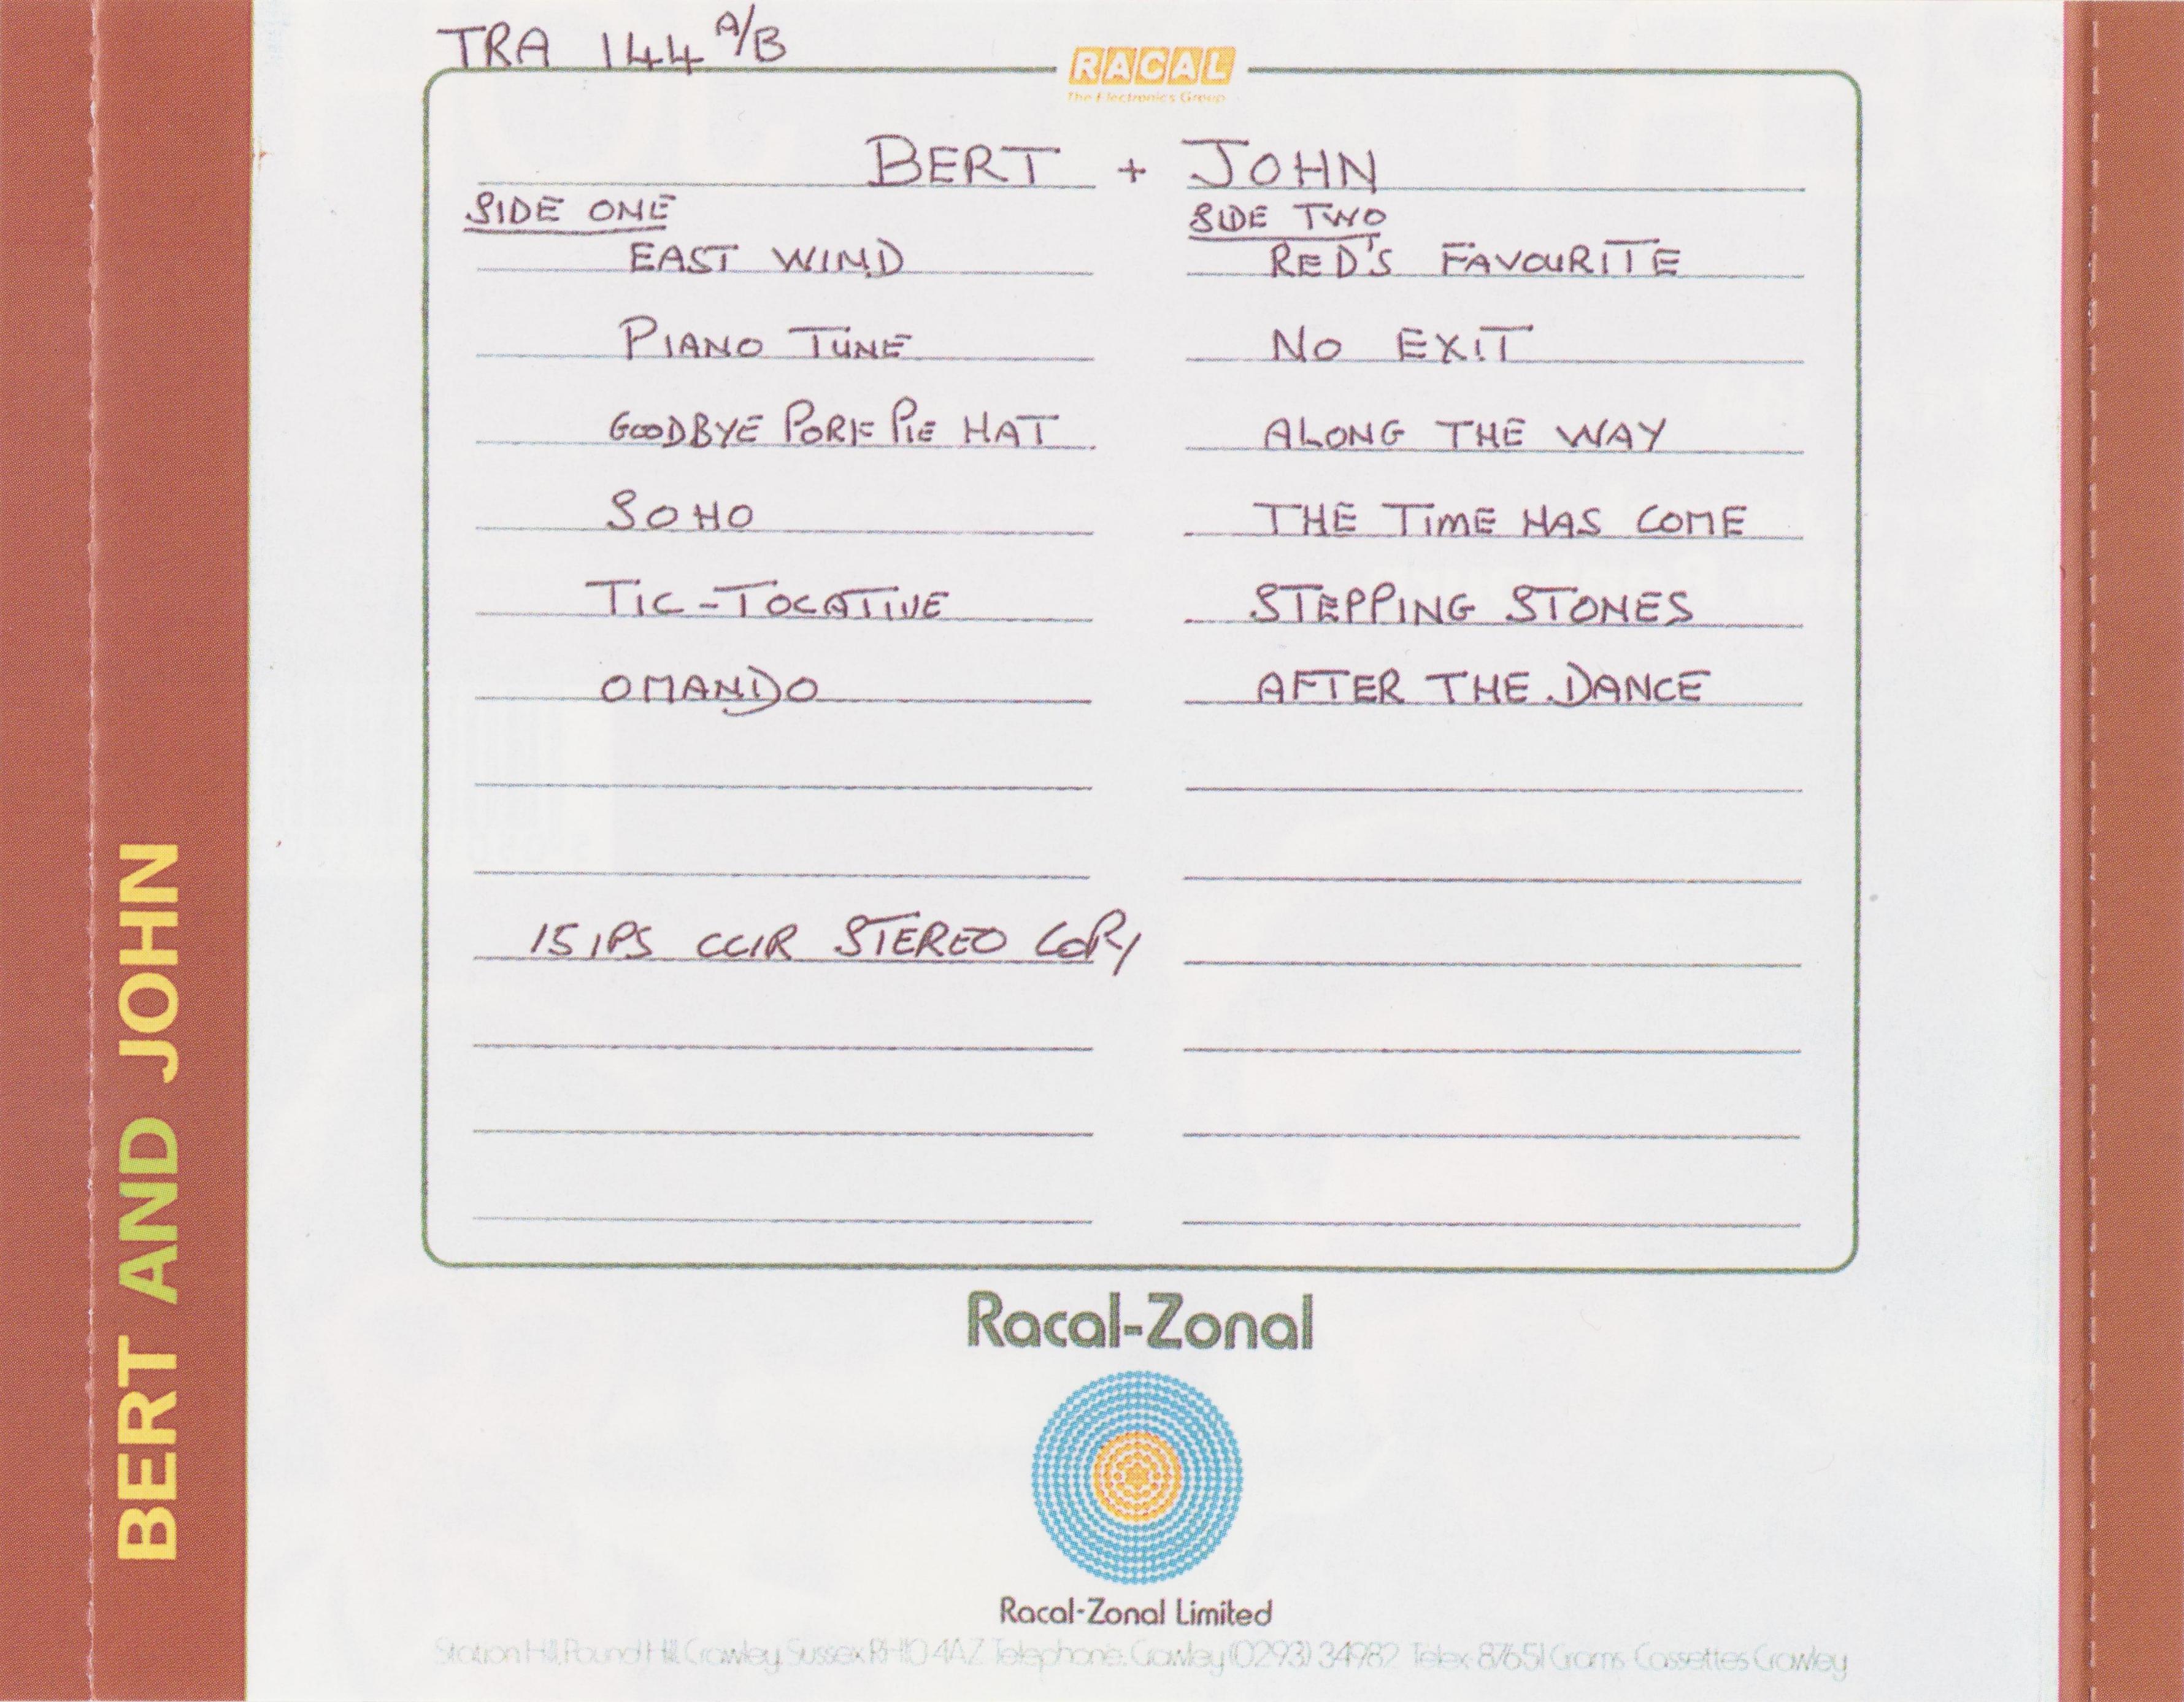 TRA 144 A/B
RACAL
The Electronics Group
BERT + JOHN
SIDE ONE
EAST WIND
PIANO TUNE
GOODBYE PORK PIE HAT
SOHO
TIC-TOCATIVE
OMANDO
15 IPS CCIR STEREO COPY
SIDE TWO
RED'S FAVOURITE
NO EXIT
ALONG THE WAY
THE TIME HAS COME
STEPPING STONES
AFTER THE DANCE
Racal-Zonal
Racal-Zonal Limited
Station Hill, Pound Hill, Crawley, Sussex RH10 4AZ Telephone: Crawley (0293) 34982 Telex 87651 Grams Cassettes Crawley
BERT AND JOHN